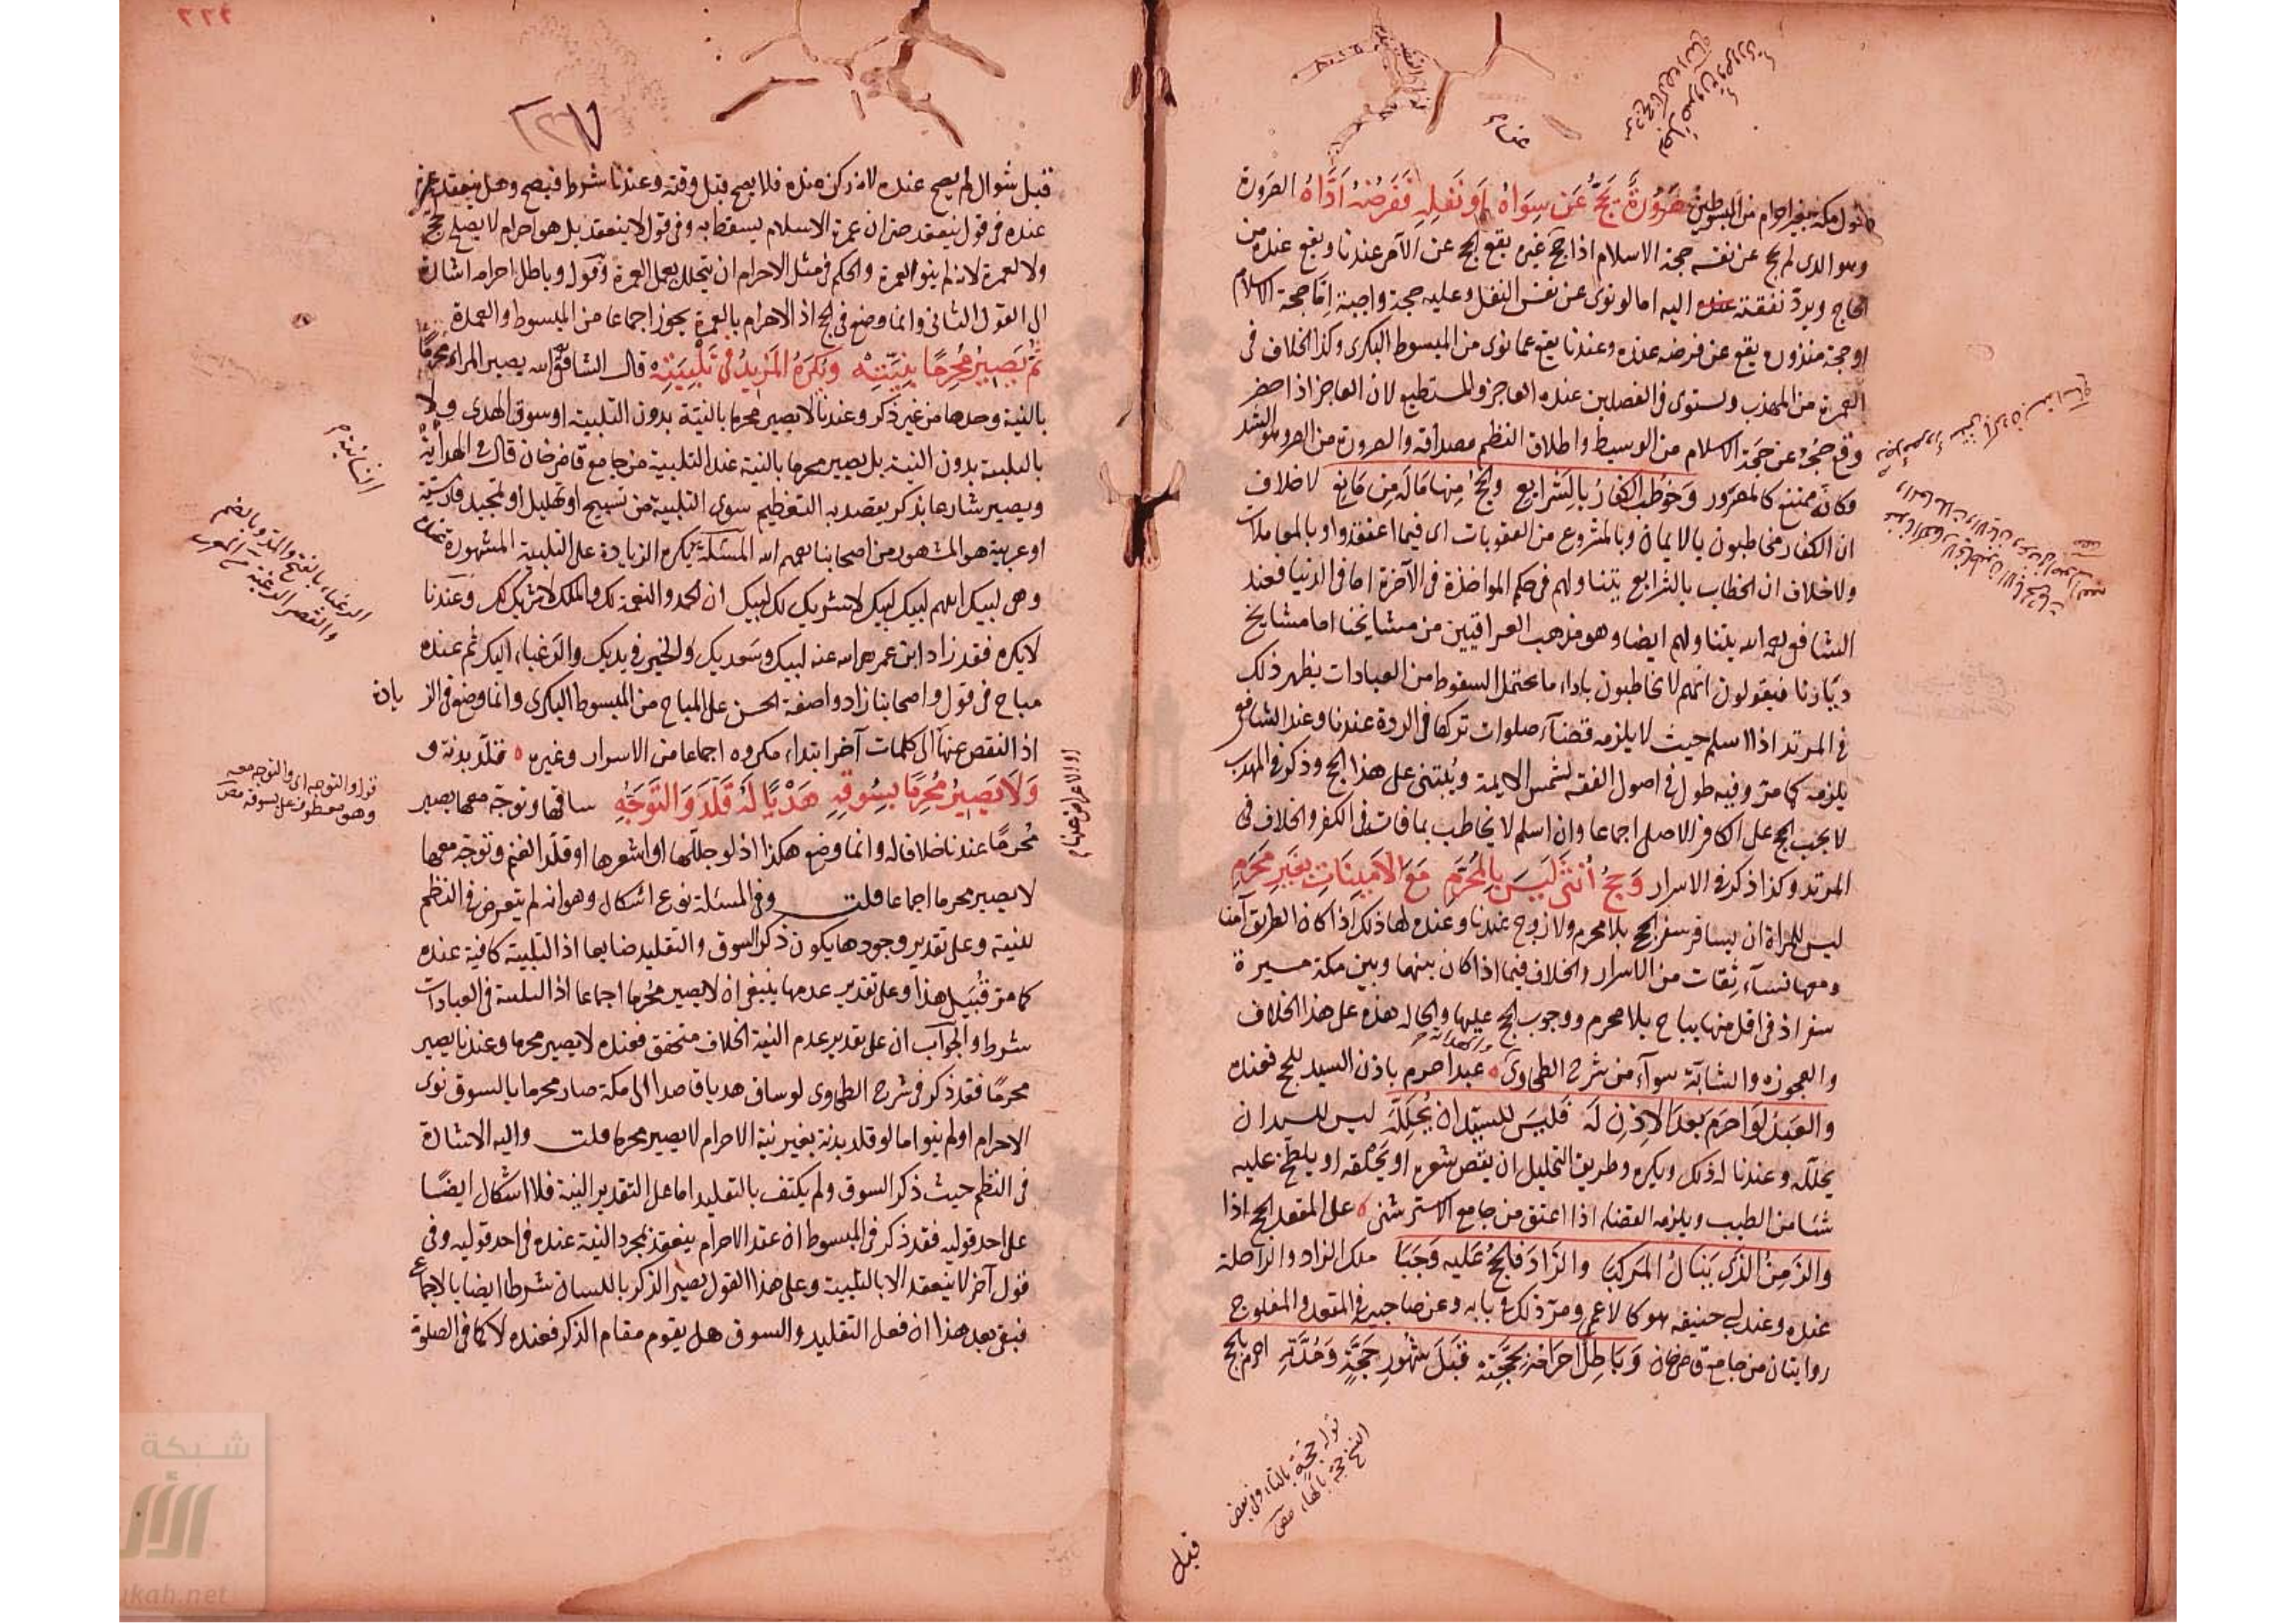 دخول مكة بغير احرام من المبسوطين صَرُورَةٌ يَحُجُّ عَن سِوَاهُ اَو نَفلِهِ فَفَرضُهُ اَدَّاهُ الصرورة
وهو الذى لم يحج عن نفسه حجة الاسلام اذا حج غيره يقع الحج عن الآمر عندنا ويقع عنده من
الحاج ويردّ نفقته عنده اليه اما لو نوى عن نفس النفل وعليه حجة واجبة اِمّا حجة الاسلام
او حجة منذورة يقع عن فرضه عنده وعندنا يقع عما نوى من المبسوط البكرى وكذا الخلاف فى
العمرة من المهذب ويستوى فى الفصلين عنده العاجز والمستطيع لان العاجز اذا حضر
وقع حجه عن حجة الاسلام من الوسيط واطلاق النظم مصداقه والصرورة من الصر وهو الشد
وكانه ممتنع كالمصرور وَخُوطِبَ الكفارُ بِالشَرايِعِ وَالحَجُّ مِنهَا مَا لَهُ مِن مَانِعٍ لا خلاف
ان الكفار مخاطبون بالايمان وبالمشروع من العقوبات اى فيما اعتقدوا وبالمعاملات
ولا خلاف ان الخطاب بالشرايع يتناولهم فى حكم المواخذة فى الآخرة اما فى الدنيا فعند
الشافعى رحمه الله يتناولهم ايضا وهو مذهب العراقيين من مشايخنا اما مشايخ
ديارنا فيقولون انهم لا يخاطبون باداء ما يحتمل السقوط من العبادات يظهر ذلك
فى المرتد اذا اسلم حيث لا يلزمه قضآء صلوات تركها فى الردة عندنا وعند الشافعى
يلزمه كما مرّ وفيه طول فى اصول الفقه لشمس الايمة ويُبتنى على هذا الحج وذكر فى المهذب
لا يجب الحج على الكافر الاصلى اجماعا وان اسلم لا يخاطب بما فات فى الكفر والخلاف فى
المرتد وكذا ذكر فى الاسرار وَحَجُّ أُنثَى لَيسَ بِالمُحَرَّمِ مَعَ الاَمِينَاتِ بِغَيرِ مَحرَمِ
ليس للمراة ان تسافر سفر الحج بلا محرم ولا زوج عندنا وعنده لها ذلك اذا كان الطريق آمنا
ومعها نسآء ثقات من الاسرار والخلاف فيما اذا كان بينها وبين مكة مسيرة
سفر اذ فى اقل منها يباح بلا محرم ووجوب الحج عليها والحالة هذه على هذا الخلاف
والعجوزة والشابّة سوآء من شرح الطحاوى عبد احرم باذن السيد للحج فعنده
والعَبدُ لَو احرَمَ بعدَ الاِذنِ لَه فَلَيسَ للسيّد اَن يُحلِّلَه ليس للسيد ان
يحلله وعندنا له ذلك ويكره وطريق التحليل ان يقص شعره او يحلقه او يلطّخ عليه
شئا من الطيب ويلزمه القضاء اذا اعتق من جامع الاسترشنى على المقعد الحج اذا
والزَمِنُ الذى يَنَالُ المَركبَا والزَادَ فالحَجُّ عَلَيه وَجَبَا ملك الزاد والراحلة
عنده وعند ابى حنيفه هو كالاعمى ومرّ ذلك فى بابه وعن صاحبيه فى المقعد والمفلوج
روايتان من جامع قاضى خان وَبَاطِلٌ اِحرَامُهُ بِحَجَّتِه قَبلَ شُهُورِ حَجَّةٍ وَمُدَّتِه احرم بالحج
قوله حجة بالتاء وفى بعض
النسخ حجه بالهاء مص
قبل
قبل شوال لم يصح عنده لانه ركن عنده فلا يصح قبل وقته وعندنا شرط فيصح وهل ينعقد عمرة
عنده فى قول ينعقد حتى ان عمرة الاسلام يسقط به وفى قول لا ينعقد بل هو احرام لا يصلح لحج
ولا لعمرة لانه لم ينو العمرة والحكم فى مثل الاحرام ان يتحلل بعمل العمرة وقوله وباطل احرامه اشارة
الى القول الثانى وانما وضع فى الحج اذ الاحرام بالعمرة يجوز اجماعا من المبسوط والعمدة
ثُمَّ يَصِيرُ مُحرِمًا بِنِيَّتِهْ وَيُكرَهُ المَزِيدُ فى تَلبِيَتِهْ قال الشافعى رحمه الله يصير المراد محرمًا
بالنية وحدها من غير ذكر وعندنا لا يصير محرما بالنية بدون التلبية او سوق الهدى ولا
بالتلبية بدون النية بل يصير محرما بالنية عند التلبية من جامع قاضى خان قال فى الهداية
ويصير شارعا بذكر يقصد به التعظيم سوى التلبية من تسبيح او تهليل او تمجيد فارسية
او عربية هو المشهور من اصحابنا رحمهم الله المسئلة يكره الزيادة على التلبية المشهورة عنده
وهى لبيك اللهم لبيك لبيك لا شريك لك لبيك ان الحمد والنعمة لك والملك لا شريك لك وعندنا
لا يكره فقد زاد ابن عمر رضى الله عنه لبيك وسعديك والخير فى يديك والرغباء اليك ثم عنده
مباح فى قول واصحابنا زادوا صفة الحسن على المباح من المبسوط البكرى وانما وضع فى الزيادة
اذ النقص عنها الى كلمات آخر ابتداء مكروه اجماعا من الاسرار وغيره قلّد بدنة و
وَلَا يَصِيرُ مُحرِمًا بِسَوقِهِ هَديًا لَه قَلَّدَ وَالتَوَجُّهِ ساقها وتوجّه معها يصير
مُحرمًا عندنا خلافا له وانما وضع هكذا اذ لو جلّلها او اشعرها او قلّد الغنم وتوجّه معها
لا يصير محرما اجماعا قلت وفى المسئلة نوع اشكال وهو انه لم يتعرض فى النظم
للنية وعلى تقدير وجودها يكون ذكر السوق والتقليد ضايعا اذ التلبية كافية عنده
كما مرّ قُبَيل هذا وعلى تقدير عدمها ينبغى ان لا يصير محرما اجماعا اذ النية فى العبادات
شرط والجواب ان على تقدير عدم النية الخلاف متحقق فعنده لا يصير محرما وعندنا يصير
محرمًا فقد ذكر فى شرح الطحاوى لو ساق هديا قاصدا الى مكة صار محرما بالسوق نوى
الاحرام او لم ينو اما لو قلد بدنة بغير نية الاحرام لا يصير محرما قلت واليه الاشارة
فى النظم حيث ذكر السوق ولم يكتف بالتقليد اما على التقدير النية فلا اشكال ايضًا
على احد قوليه فقد ذكر فى المبسوط ان عقد الاحرام ينعقد بمجرد النية عنده فى احد قوليه وفى
قول آخر لا ينعقد الا بالتلبية وعلى هذا القول يصير الذكر باللسان شرطا ايضا بالاجماع
فبقى بعد هذا ان فعل التقليد والسوق هل يقوم مقام الذكر فعنده لا كما فى الصلوة
الرغباء بالفتح والمد وبالضم
والقصر الرغبة من المغرب
قوله والتوجه اى والتوجه معه
وهو معطوف على بسوقه مص
شبكة
ukah.net